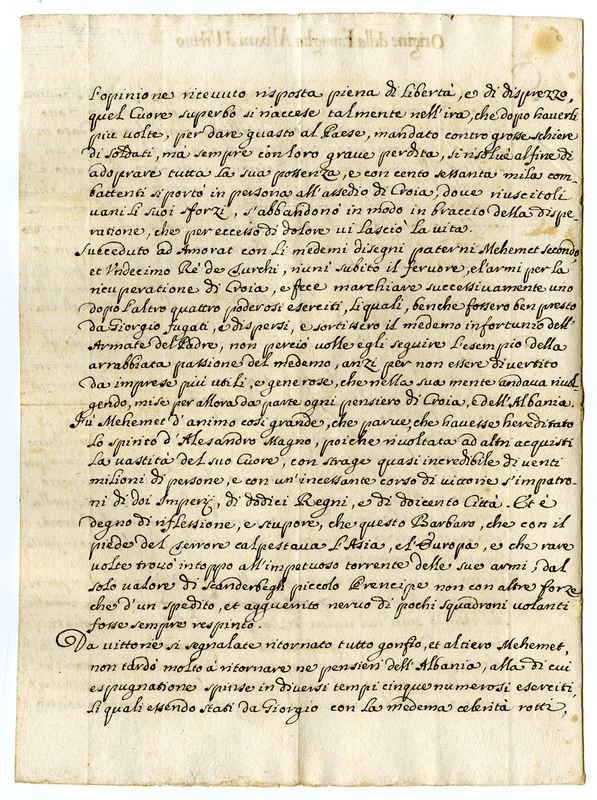 l'opinione ricevuto risposta piena di libertà, e di disprezzo,
quel Cuore superbo si naccese talmente nell'ira, che dopo haverli
più volte, per dare guasto al Paese, mandato contro grosse schiere
di soldati, mà sempre con loro grave perdita, si risolvè alfine di
adoprare tutta la sua possenza, e con cento sessanta mila com-
battenti si portò in persona all'assedio di Croia, dove riuscitoli
vani li suoi sforzi, s'abbandonò in modo in braccio della dispe-
ratione, che per eccesso di dolore vi lasciò la vita.
Succeduto ad Amorat con li medemi disegni paterni Mehemet secondo,
et Undecimo Rè de Turchi, riunì subito il fervore, e l'armi per la
ricuperatione di Croia, e fece marchiare successivamente uno
dopo l'altro quattro poderosi eserciti, li quali, benche fossero ben presto
da Giorgio fugati, e dispersi, e sortissero il medemo infortunio dell'
Armate del Padre, non perciò volle egli seguire l'esempio della
arrabbiata passione del medemo, anzi per non essere divertito
da imprese più utili, e generose, che nella sua mente andava rivol
gendo, mise per allora da parte ogni pensiero di Croia, e dell'Albania.
Fù Mehemet d'animo così grande, che parve, che havesse hereditato
lo spirito d'Alesandro Magno, poiche rivoltata ad altri acquisti
la vastità del suo Cuore, con strage quasi incredibile di venti
milioni di persone, e con un'incessante corso di vittorie s'impatro-
nì di doi Imperij, di dodici Regni, e di doicento Città. Et è
degno di riflessione, e stupore, che questo Barbaro, che con il
piede del terrore calpestava l'Asia, e l'Europa, e che rare
volte trovò intoppo all'impetuoso torrente delle sue armi, dal
solo valore di Scanderbegh piccolo Prencipe non con altre forze
che d'un spedito, et agguerrito nervo di pochi squadroni volanti
fosse sempre respinto.
Da vittorie si segnalate ritornato tutto gonfio, et altiero Mehemet,
non tardò molto à ritornare ne pensieri dell'Albania, alla di cui
espugnatione spinse in diversi tempi cinque numerosi eserciti,
li quali essendo stati da Giorgio con la medema celerità rotti,